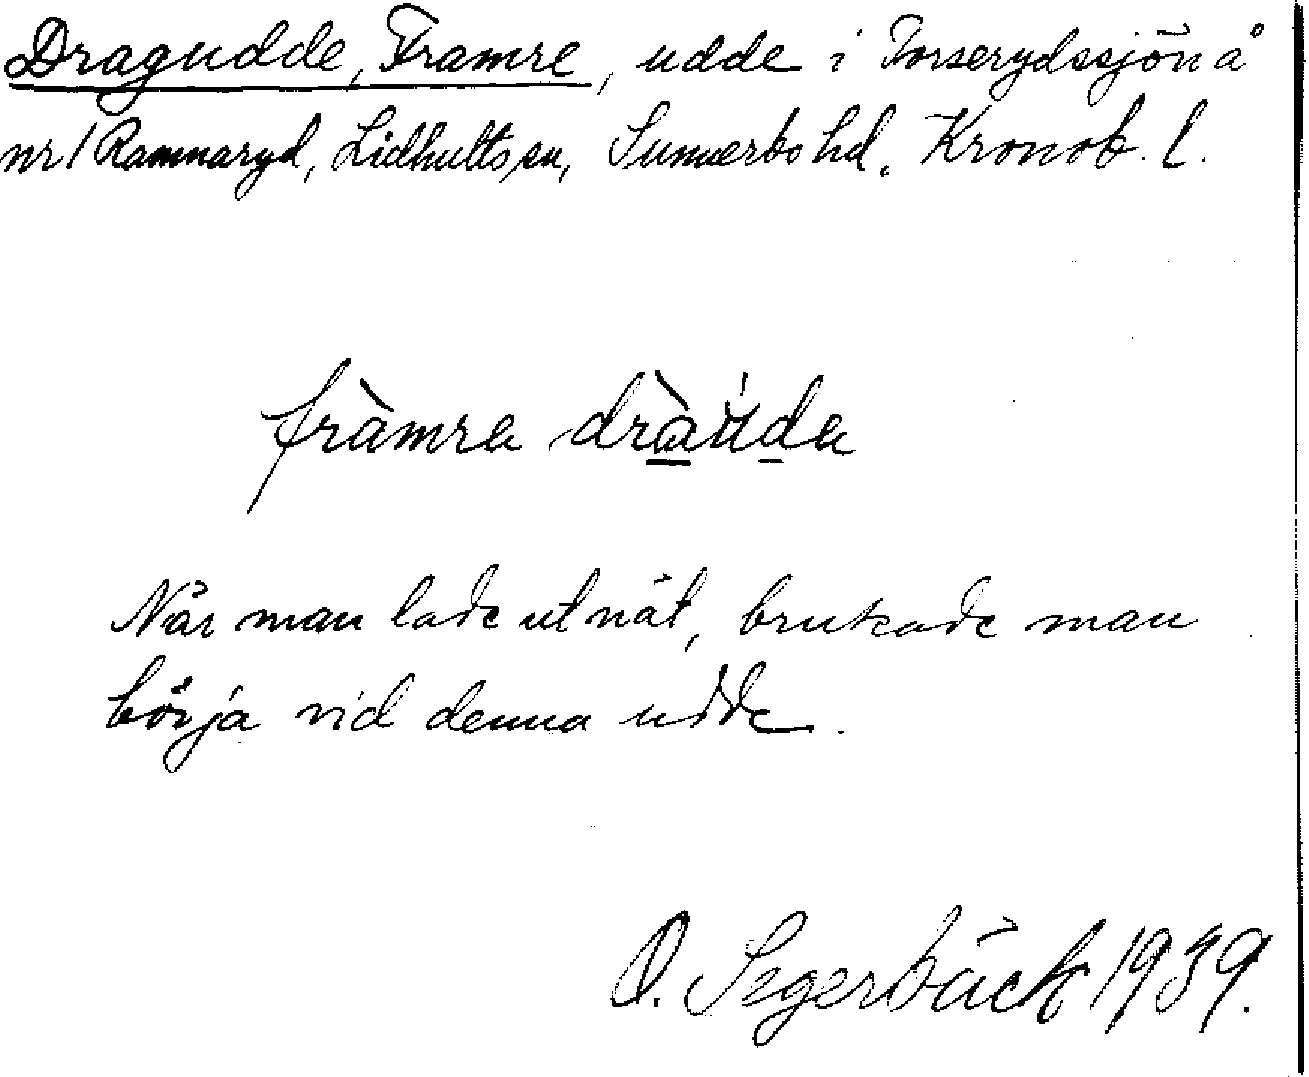 Dragudde, Framre, udde i Torserydssjön å
nr 1 Ramnaryd, Lidhults sn, Sunnerbo hd. Kronob. l.
fràmra
När man lade ut nät, brukade man
börja vid denna udde.
O. Segerbäck 1939.